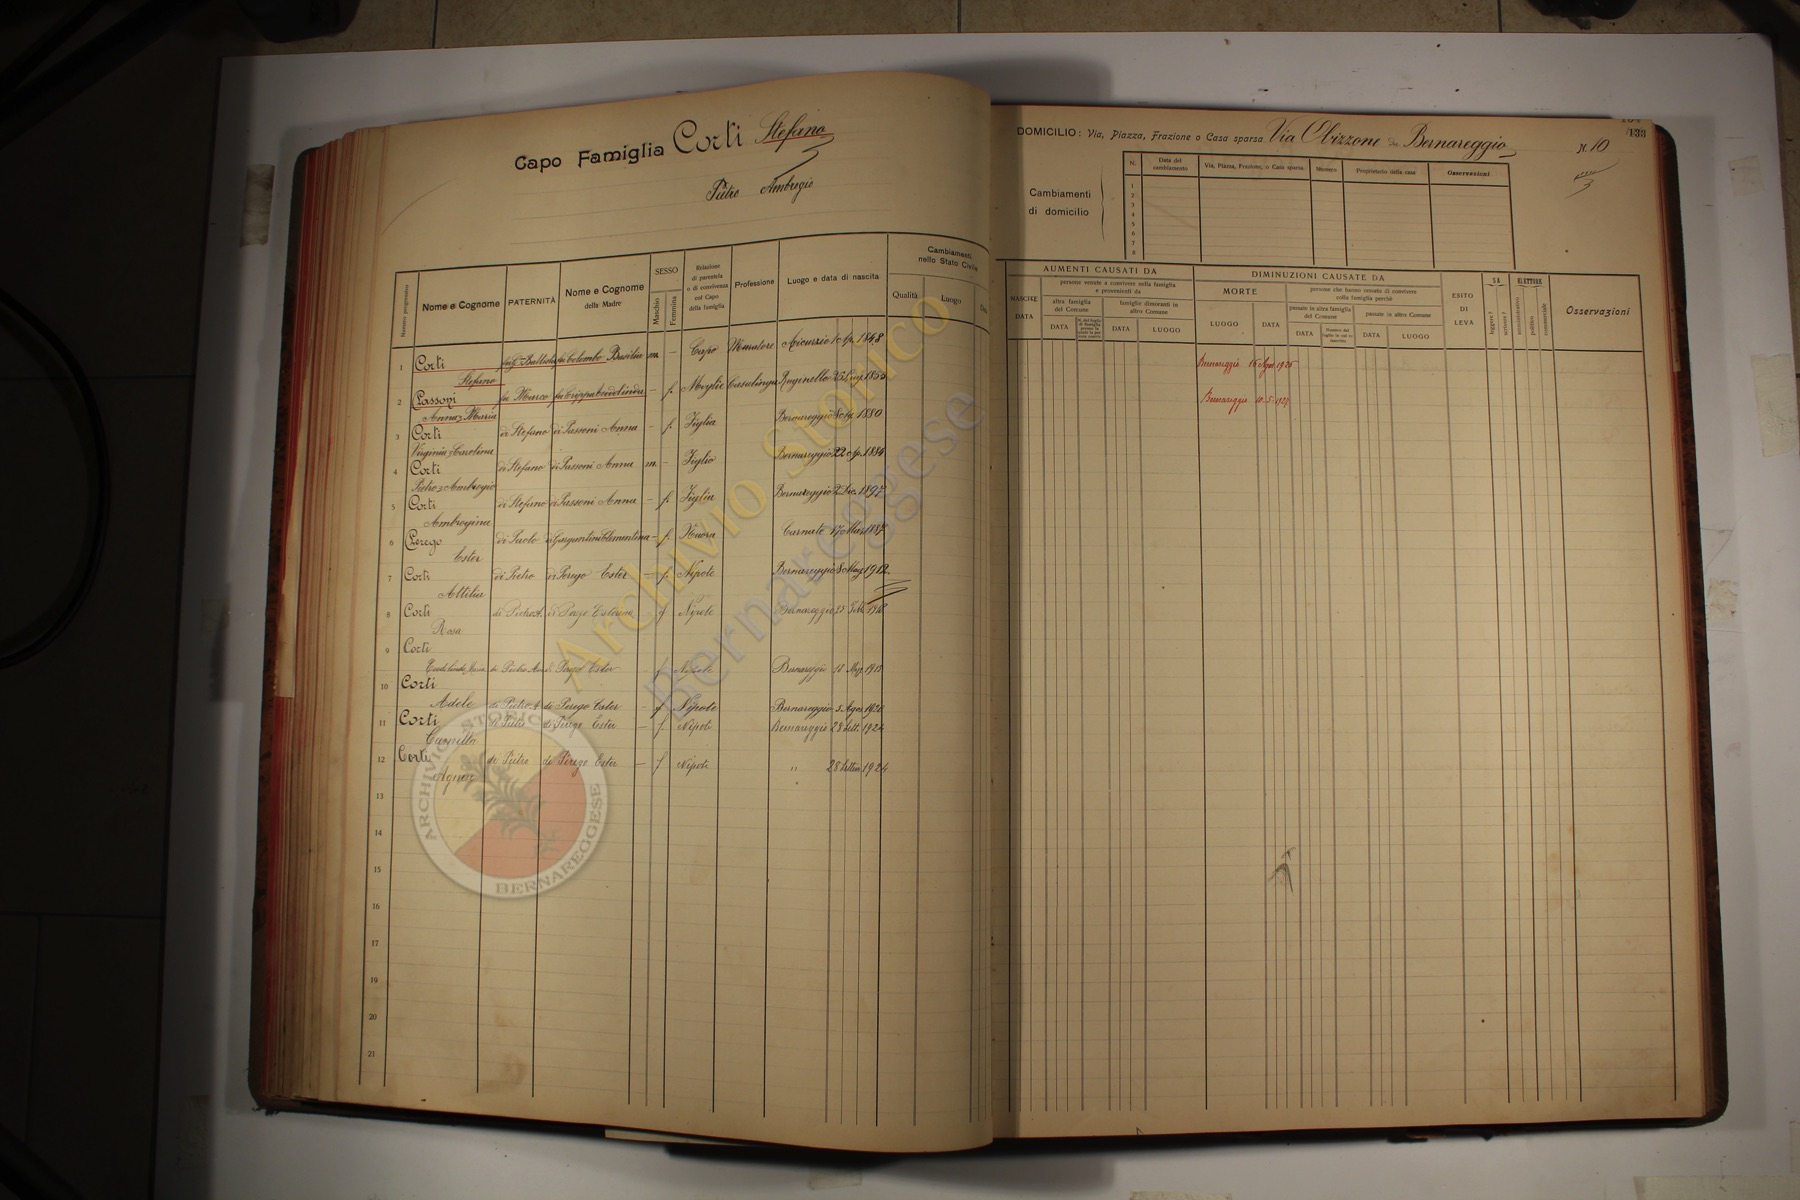 Capo Famiglia Corti Stefano
Pietro Ambrogio
Numero progressivo
Nome e Cognome
PATERNITÀ
Nome e Cognome della Madre
SESSO
Maschio
Femmina
Relazione di parentela o di convivenza col Capo della famiglia
Professione
Luogo e data di nascita
Cambiamenti nello Stato Civile
Qualità
Luogo
1 Corti Stefano fu G. Battista fu Colombo Basilia m. - Capo Aicurzio 1848
2 Passoni Anna Maria fu Marco fu Crippa Teodolinda - f. Moglie Casalinga Ruginello
3 Corti Virginia Carolina di Stefano di Passoni Anna - f. Figlia Bernareggio 1880
4 Corti Pietro Ambrogio di Stefano di Passoni Anna m. - Figlio Bernareggio 22 1884
5 Corti Ambrogina di Stefano di Passoni Anna - f. Figlia Bernareggio 2 Dic. 1897
6 Perego Ester di Paolo di Clementina - f. Nuora Carnate 17 1887
7 Corti Attilia di Pietro di Perego Ester - f. Nipote Bernareggio 8 1912
8 Corti Rosa di Pietro A. di f Nipote Bernareggio
9 Corti di Pietro Perego Ester - f Nipote Bernareggio 1915
10 Corti Adele di Pietro A. di Perego Ester - f Nipote Bernareggio 5 Agos. 1920
11 Corti Camilla di Pietro di Perego Ester - f Nipote Bernareggio 28 Sett. 1924
12 Corti Agnese di Pietro di Perego Ester - f Nipote " 28 Settem 1924
13
14
15
16
17
18
19
20
21
DOMICILIO: Via, Piazza, Frazione o Casa sparsa Via Obizzone Bernareggio N. 10
133
Cambiamenti di domicilio
N.
Data del cambiamento
Via, Piazza, Frazione, o Casa sparsa
Numero
Proprietario della casa
Osservazioni
1
2
3
4
5
6
7
8
AUMENTI CAUSATI DA
NASCITE
DATA
persone venute a convivere nella famiglia e provenienti da
altra famiglia del Comune
famiglie dimoranti in altro Comune
DATA
DATA
LUOGO
DIMINUZIONI CAUSATE DA
MORTE
LUOGO
DATA
persone che hanno cessato di convivere colla famiglia perchè
passate in altra famiglia del Comune
passate in altro Comune
DATA
DATA
LUOGO
ESITO DI LEVA
SA
leggere?
scrivere?
ELETTORE
amministrativo
politico
commerciale
Osservazioni
Bernareggio 16 1926
Bernareggio 10-5-1927
Archivio Storico
Bernareggese
ARCHIVIO STORICO
BERNAREGGESE